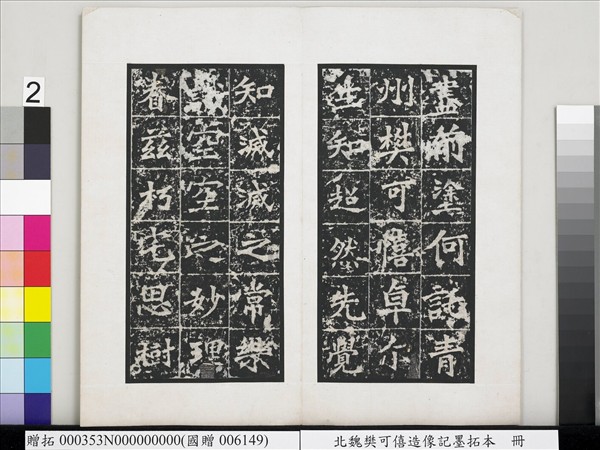 盡前塗何託青
州樊可僖卓尒
生知超然先覺
知滅滅之常樂
識空空之妙理
眷茲朽宅思樹
2
贈拓 000353N000000000(國贈 006149)
北魏樊可僖造像記墨拓本 冊